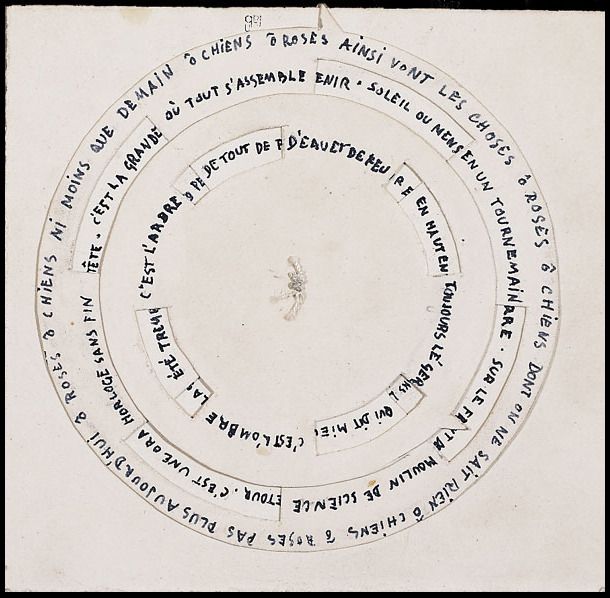 ô CHIENS ô ROSES AINSI VONT LES CHOSES ô ROSES ô CHIENS DONT ON NE SAIT RIEN ô CHIENS ô ROSES PAS PLUS AUJOURD'HUI ô ROSES ô CHIENS NI MOINS QUE DEMAIN
C'EST LA GRANDE OÙ TOUT S'ASSEMBLE ENIR. SOLEIL OU MENS EN UN TOURNEMAIN RE. SUR LE FR MOULIN DE SCIENCE ETOUR. C'EST UNE ORA HORLOGE SANS FIN TÊTE.
C'EST L'ARBRE PE DE TOUT DE F D'EAU ET DE FEU RE EN HAUT EN TOUJOURS LÉGER QUI DIT MIE C'EST L'OMBRE LA ÉTÉ TREM